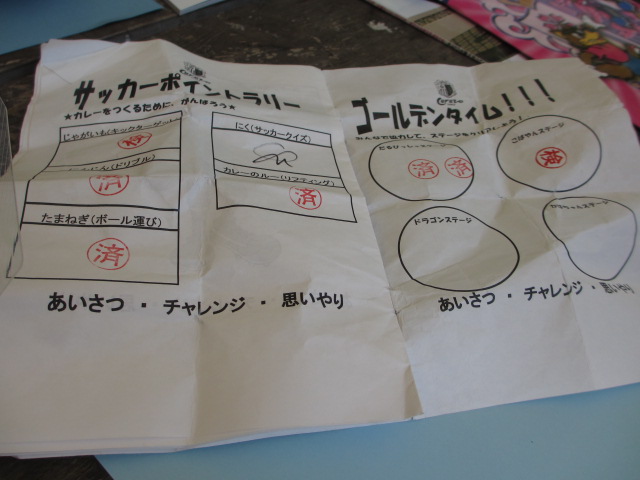 サッカーポイントラリー
★カレーをつくるために、がんばろう★
じゃがいも(キックターゲット)
済
(ドリブル)
済
たまねぎ(ボール運び)
済
にく(サッカークイズ)
カレーのルー(リフティング)
済
あいさつ ・ チャレンジ ・ 思いやり
ゴールデンタイム!!!
みんなで協力して、ステージをクリアしよう!
済 済
こばやんステージ
ドラゴンステージ
あいさつ ・ チャレンジ ・ 思いやり